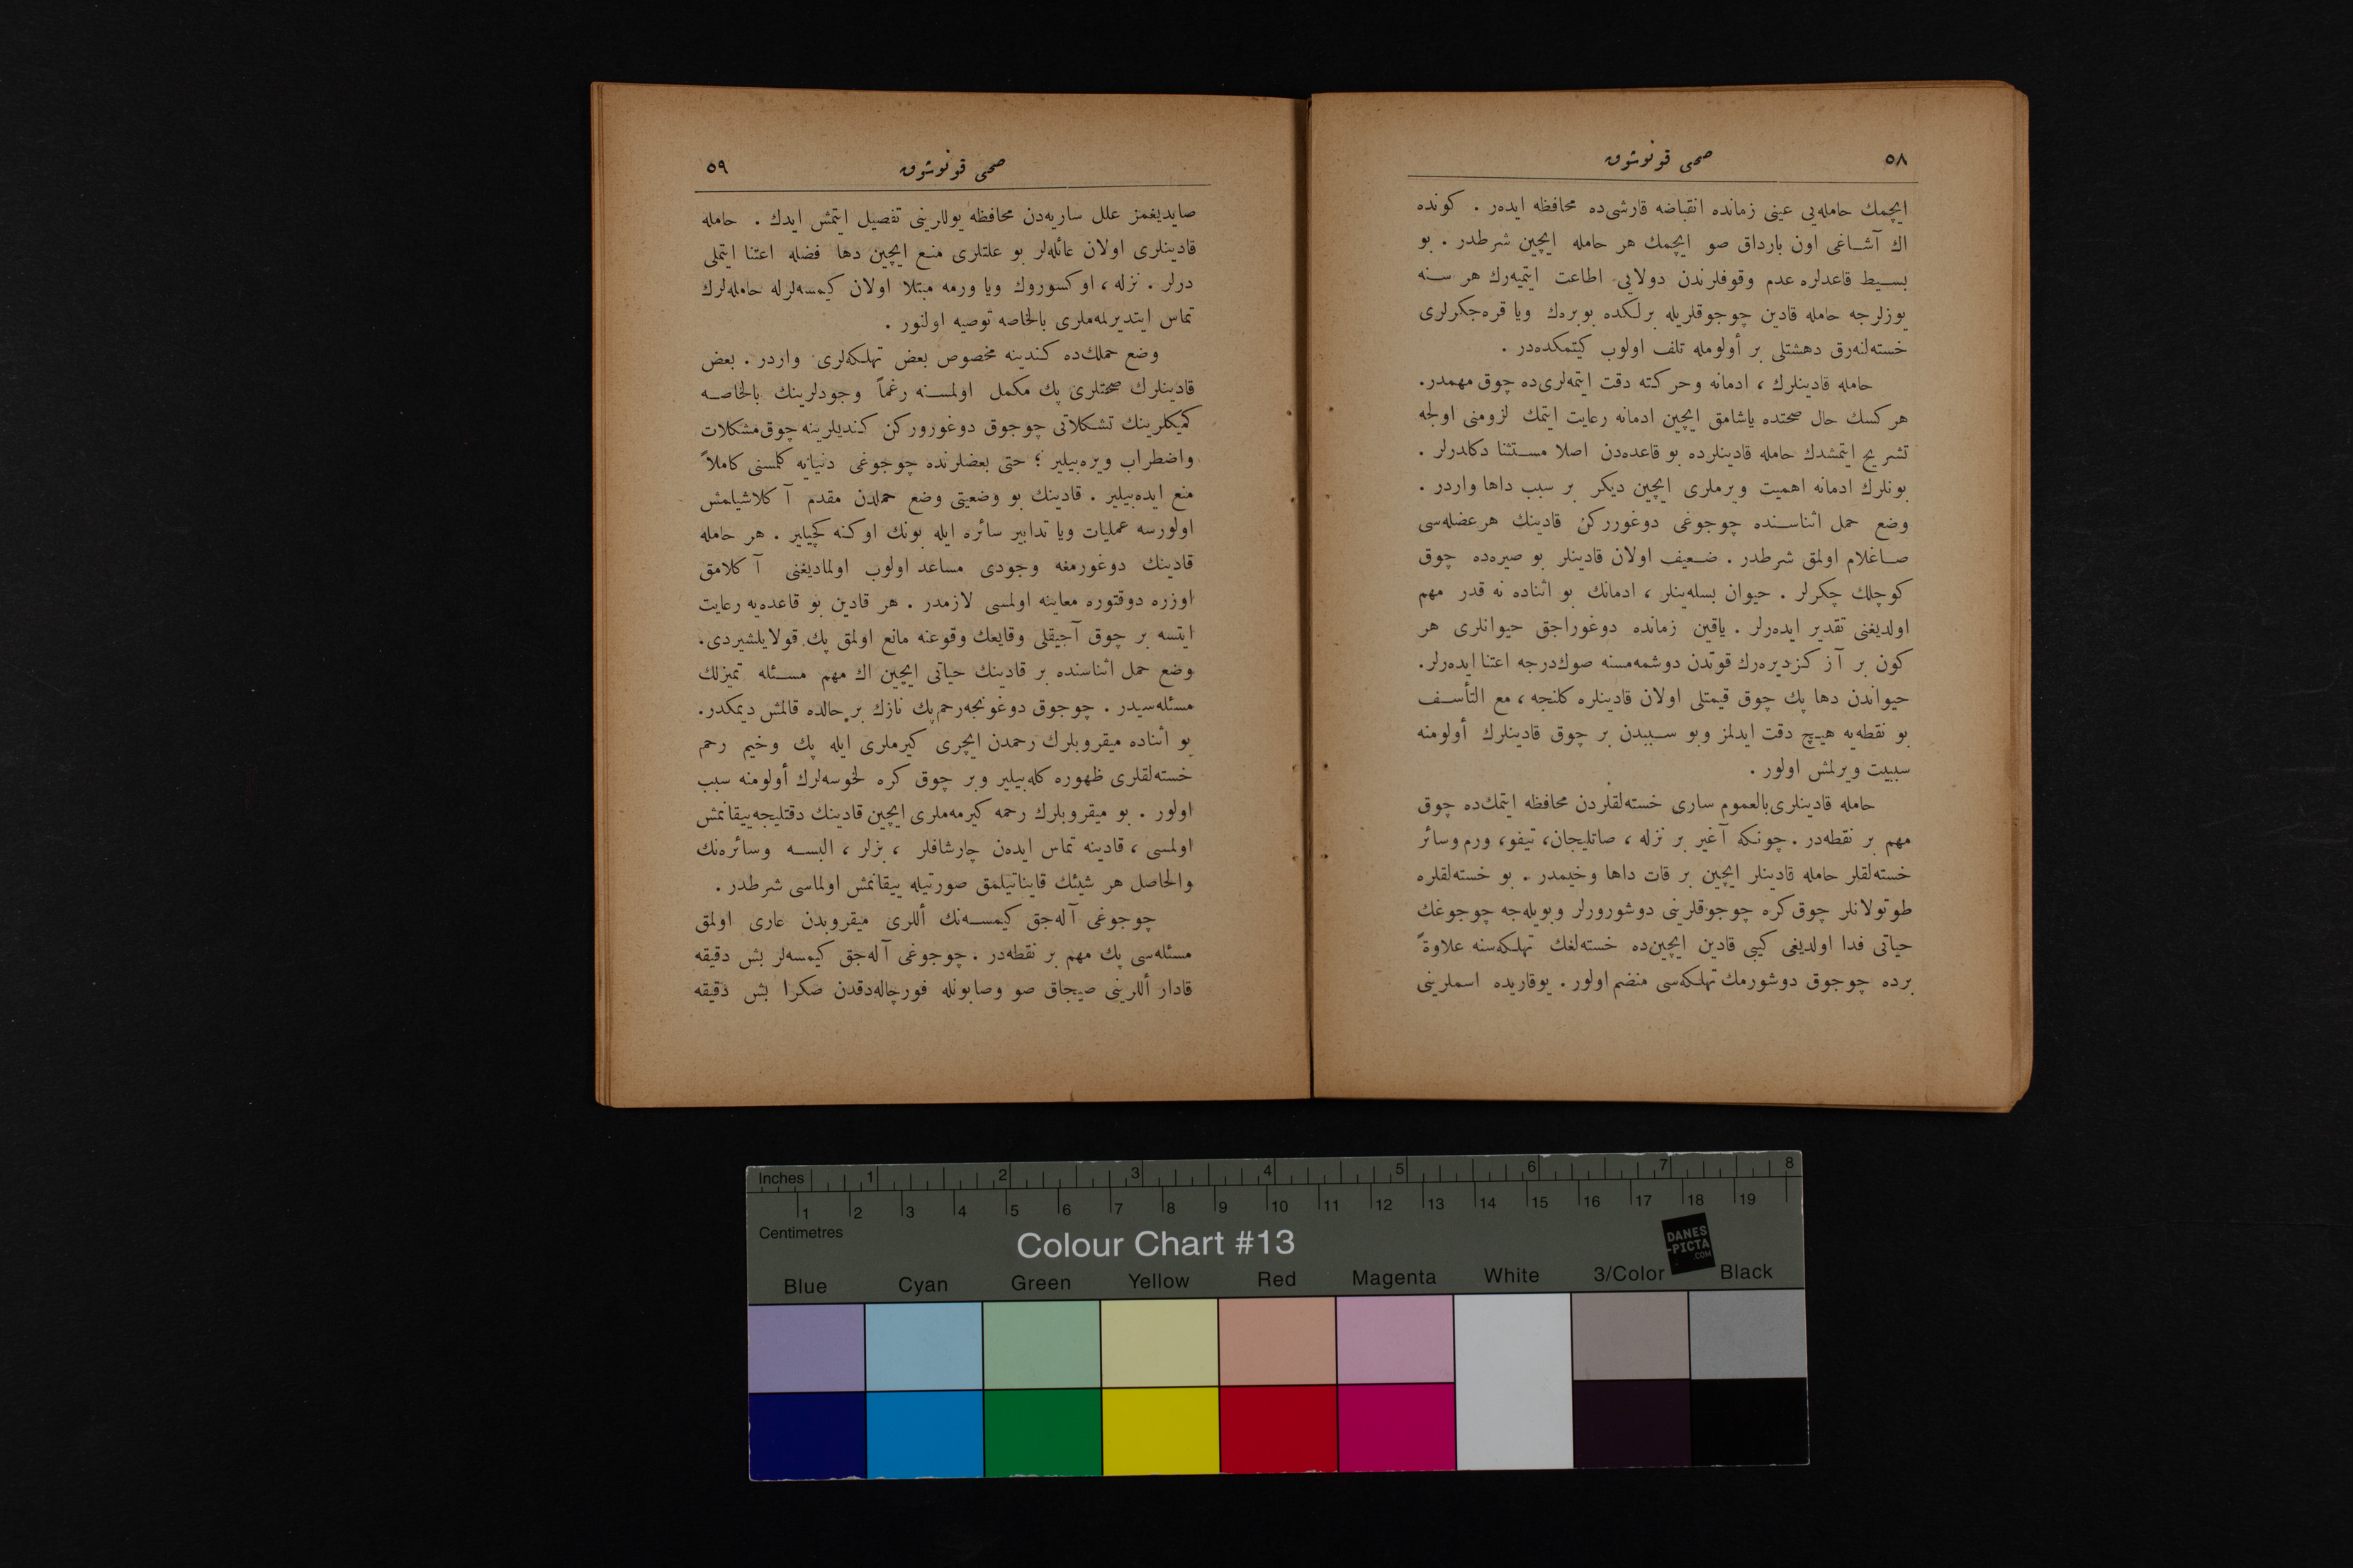 ٥٨
صحی قونوشوق
ایچمك حامله‌یی عینی زمانده انقباضه قارشی‌ده محافظه ایدەر . كونده
اك آشاغی اون بارداق صو ایچمك هر حامله ایچین شرطدر . بو
بسیط قاعدلره عدم وقوفلرندن دولایی اطاعت ایتمیه‌رك هر سنه
یوزلرجه حامله قادین چوجوقلریله برلكده بوبرەك ویا قره‌جكرلری
خسته‌لنەرق دهشتلی بر أولومله تلف اولوب كیتمكده‌در .
حامله قادینلرك ، ادمانه وحركته دقت ایتمه‌لری‌ده چوق مهمدر.
هركسك حال صحتده یاشامق ایچین ادمانه رعایت ایتمك لزومنی اولجه
تشریح ایتمشدك حامله قادینلرده بو قاعده‌دن اصلا مستثنا دكلدرلر .
بونلرك ادمانه اهمیت ویرملری ایچین دیكر بر سبب داها واردر .
وضع حمل اثناسنده چوجوغی دوغوررکن قادینك هرعضله‌سی
صاغلام اولمق شرطدر . ضعیف اولان قادینلر بو صیره‌ده چوق
كوچلك چكرلر . حیوان بسله‌ینلر ، ادمانك بو اثناده نه قدر مهم
اولدیغنی تقدیر ایدەرلر . یاقین زمانده دوغوراجق حیوانلری هر
كون بر آز كزدیرەرك قوتدن دوشمه‌مسنه صوك‌درجه اعتنا ایدەرلر.
حیواندن دها پك چوق قیمتلی اولان قادینلره كلنجه ، مع التأسف
بو نقطه‌یه هیچ دقت ایدلمز وبو سببدن بر چوق قادینلرك أولومنه
سببیت ویرلمش اولور .
حامله قادینلری‌بالعموم ساری خسته‌لقلردن محافظه ایتمك‌ده چوق
مهم بر نقطه‌در . چونكه آغیر بر نزله ، صاتلیجان، تیفو، ورم وسائر
خسته‌لقلر حامله قادینلر ایچین بر قات داها وخیمدر . بو خسته‌لقلره
طوتولانلر چوق‌كره چوجوقلرینی دوشورورلر وبویله‌جه چوجوغك
حیاتی فدا اولدیغی كبی قادین ایچین‌ده خسته‌لغك تهلكه‌سنه علاوةً
برده چوجوق دوشورمك تهلكه‌سی منضم اولور . یوقاریده اسملرینی
صحی قونوشوق
٥٩
صایدیغمز علل ساریه‌دن محافظه یوللارینی تفصیل ایتمش ایدك . حامله
قادینلری اولان عائله‌لر بو علتلری منع ایچین دها فضله اعتنا ایتملی
درلر . نزله ، اوكسوروك ویا ورمه مبتلا اولان كیمسه‌لرله حامله‌لرك
تماس ایتدیرلمه‌ملری بالخاصه توصیه اولنور .
وضع حملك‌ده كندینه مخصوص بعض تهلكه‌لری واردر . بعض
قادینلرك صحتلری پك مكمل اولمسنه رغماً وجودلرینك بالخاصه
كمیكلرینك تشكلاتی چوجوق دوغورورکن كندیلرینه چوق‌مشكلات
واضطراب ویره‌بیلیر ؛ حتی بعضلرنده چوجوغی دنیایه كلمسنی كاملاً
منع ایده‌بیلیر . قادینك بو وضعیتی وضع حملدن مقدم آكلاشیلمش
اولورسه عملیات ویا تدابیر سائره ایله بونك اوكنه كچیلیر . هر حامله
قادینك دوغورمغه وجودی مساعد اولوب اولمادیغنی آكلامق
اوزره دوقتوره معاینه اولمسی لازمدر . هر قادین بو قاعده‌یه رعایت
ایتسه بر چوق آجیقلی وقایعك وقوعنه مانع اولمق پك قولایلشیردی.
وضع حمل اثناسنده بر قادینك حیاتی ایچین اك مهم مسئله تمیزلك
مسئله‌سیدر . چوجوق دوغونجه‌رحم‌پك نازك بر حالده قالمش دیمكدر.
بو اثناده میقروبلرك رحمدن ایچری كیرملری ایله پك وخیم رحم
خسته‌لقلری ظهوره كله‌بیلیر وبر چوق كره لخوسه‌لرك أولومنه سبب
اولور . بو میقروبلرك رحمه كیرمه‌ملری ایچین قادینك دقتلیجه‌ییقانمش
اولمسی ، قادینه تماس ایدەن چارشافلر ، بزلر ، البسه وسائره‌نك
والحاصل هر شیئك قایناتیلمق صورتیله ییقانمش اولماسی شرطدر .
چوجوغی آله‌جق كیمسه‌نك أللری میقروبدن عاری اولمق
مسئله‌سی پك مهم بر نقطه‌در . چوجوغی آله‌جق كیمسه‌لر بش دقیقه
قادار أللرینی صیجاق صو وصابونله فورچاله‌دقدن صكرا بش دقیقه
Inches 1 2 3 4 5 6 7 8
1 2 3 4 5 6 7 8 9 10 11 12 13 14 15 16 17 18 19
Centimetres
Colour Chart #13
DANES
-PICTA
.COM
Blue Cyan Green Yellow Red Magenta White 3/Color Black